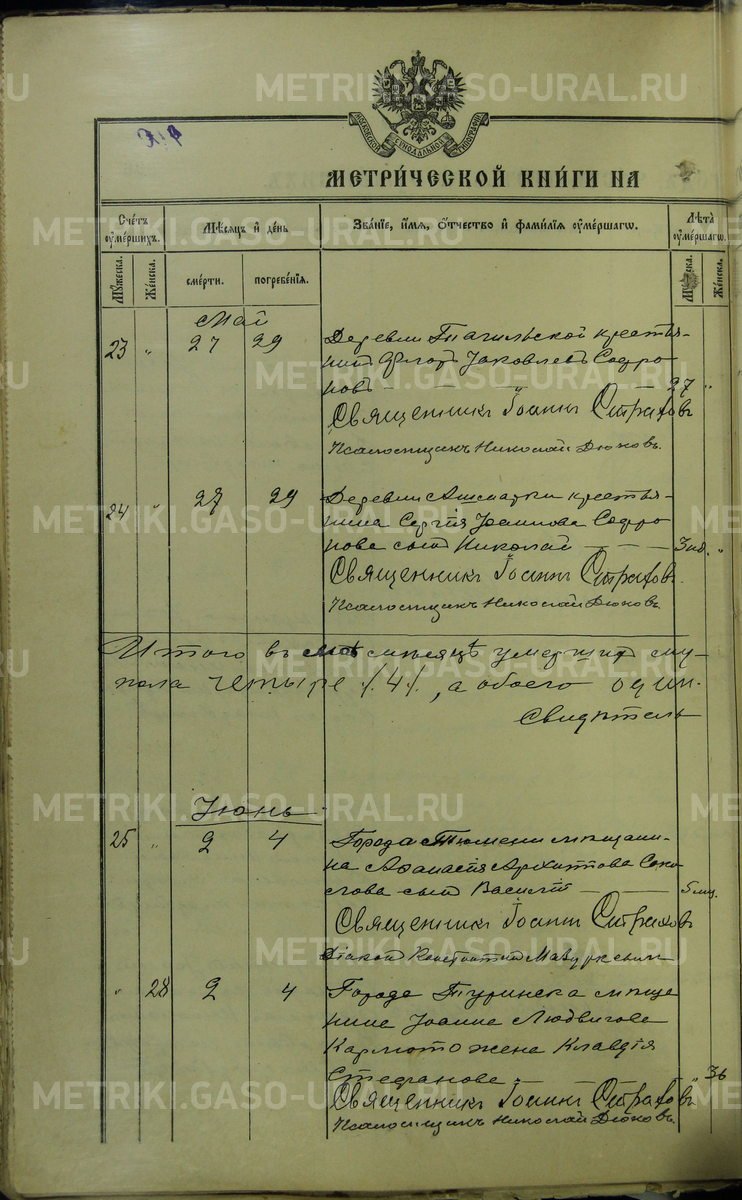 МЕТРИ́ЧЕСКОЙ КНИ́ГИ НА
Сче́тъ ᲂу҆ме́ршихъ.
Мѣ́сяцъ и҆ де́нь
Зва́нїе, и҆́мѧ, ѻ҆́тчество и҆ фами́лїѧ ᲂу҆ме́ршагѡ.
Лѣ́та ᲂу҆ме́ршагѡ.
Мꙋ́жеска.
Же́нска.
сме́рти.
погребе́нїѧ.
Мꙋ́жеска.
Же́нска.
Май
23 " 27 29 Деревни Тагильской крестья-
нинъ Флоръ Іаковлевъ Софро
новъ — — " — 27 "
Священникъ Іоаннъ Страховъ
Псаломщикъ Николай Дюковъ.
24 " 27 29 Деревни Ашмарки крестья-
нина Сергія Іоаннова Софро
нова сынъ Николай — — — 3 нд. "
Священникъ Іоаннъ Страховъ.
Псаломщикъ Николай Дюковъ.
Итого въ маѣ мѣсяцѣ умершихъ му-
пола четыре /4/, а обоего один.
Свидѣтель
Іюнь
25 " 2 4 Города Тюмени мѣщани-
на Аѳанасія Архиппова Соко
лова сынъ Василій — — — 5 мц.
Священникъ Іоаннъ Страховъ
Діаконъ Константинъ Мазуркевичъ
" 28 2 4 Города Туринска мѣща
нина Іоанна Людвигова
Кармото жена Клавдія
Стефанова — " — " 36
Священникъ Іоаннъ Страховъ
Псаломщикъ Николай Дюковъ.
METRIKI.GASO-URAL.RU